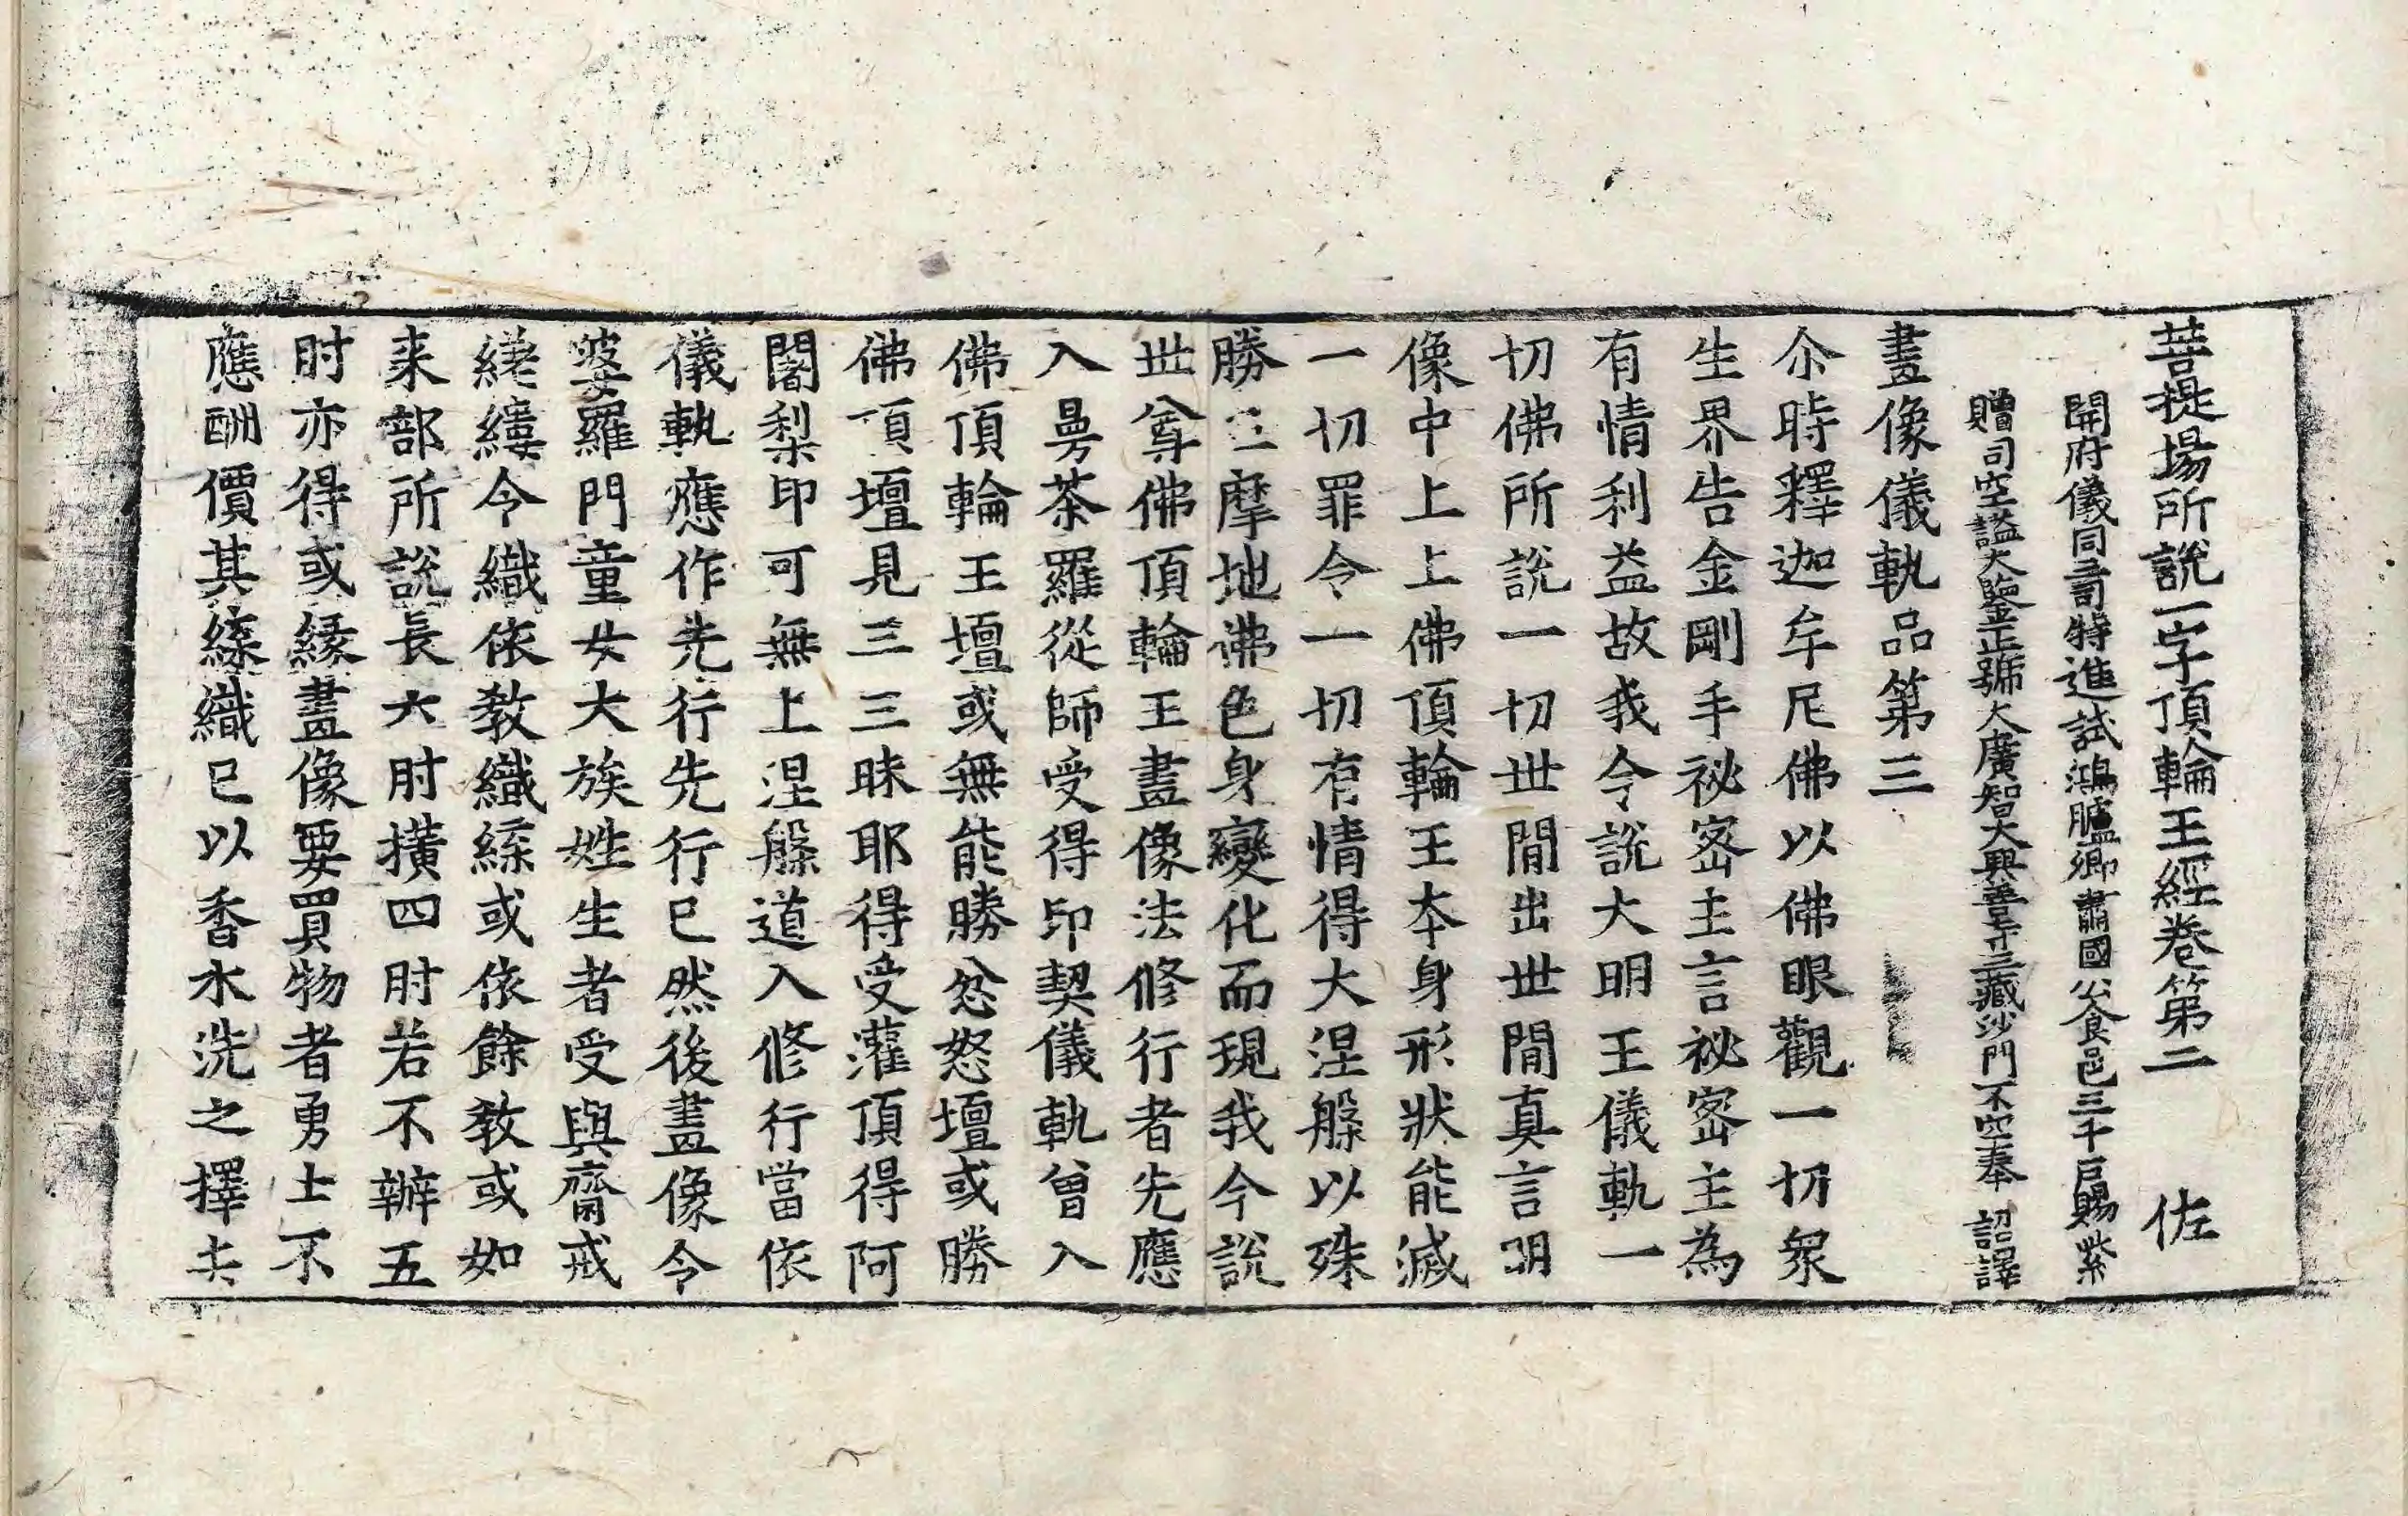 菩提場所說一字頂輪王經卷第二 佐
開府儀同三司特進試鴻臚卿肅國公食邑三千戶賜紫
贈司空謚大鑒正號大廣智大興善寺三藏沙門不空奉 詔譯
畫像儀軌品第三
尒時釋迦牟尼佛以佛眼觀一切衆
生界告金剛手祕密主言祕密主為
有情利益故我今說大明王儀軌一
切佛所說一切世閒出世閒真言明
像中上上佛頂輪王本身形狀能滅
一切罪令一切有情得大涅槃以殊
勝三摩地佛色身變化而現我今說
世尊佛頂輪王畫像法修行者先應
入曼茶羅從師受得印契儀軌曾入
佛頂輪王壇或無能勝忿怒壇或勝
佛頂壇見三三昧耶得受灌頂得阿
闍梨印可無上涅槃道入修行當依
儀軌應作先行先行已然後畫像令
婆羅門童女大族姓生者受與齋戒
縒縷令織依教織絛或依餘教或如
来部所說長六肘擴四肘若不辦五
肘亦得或緣畫像要買物者勇士不
應酬價其絛織已以香水洗之擇去